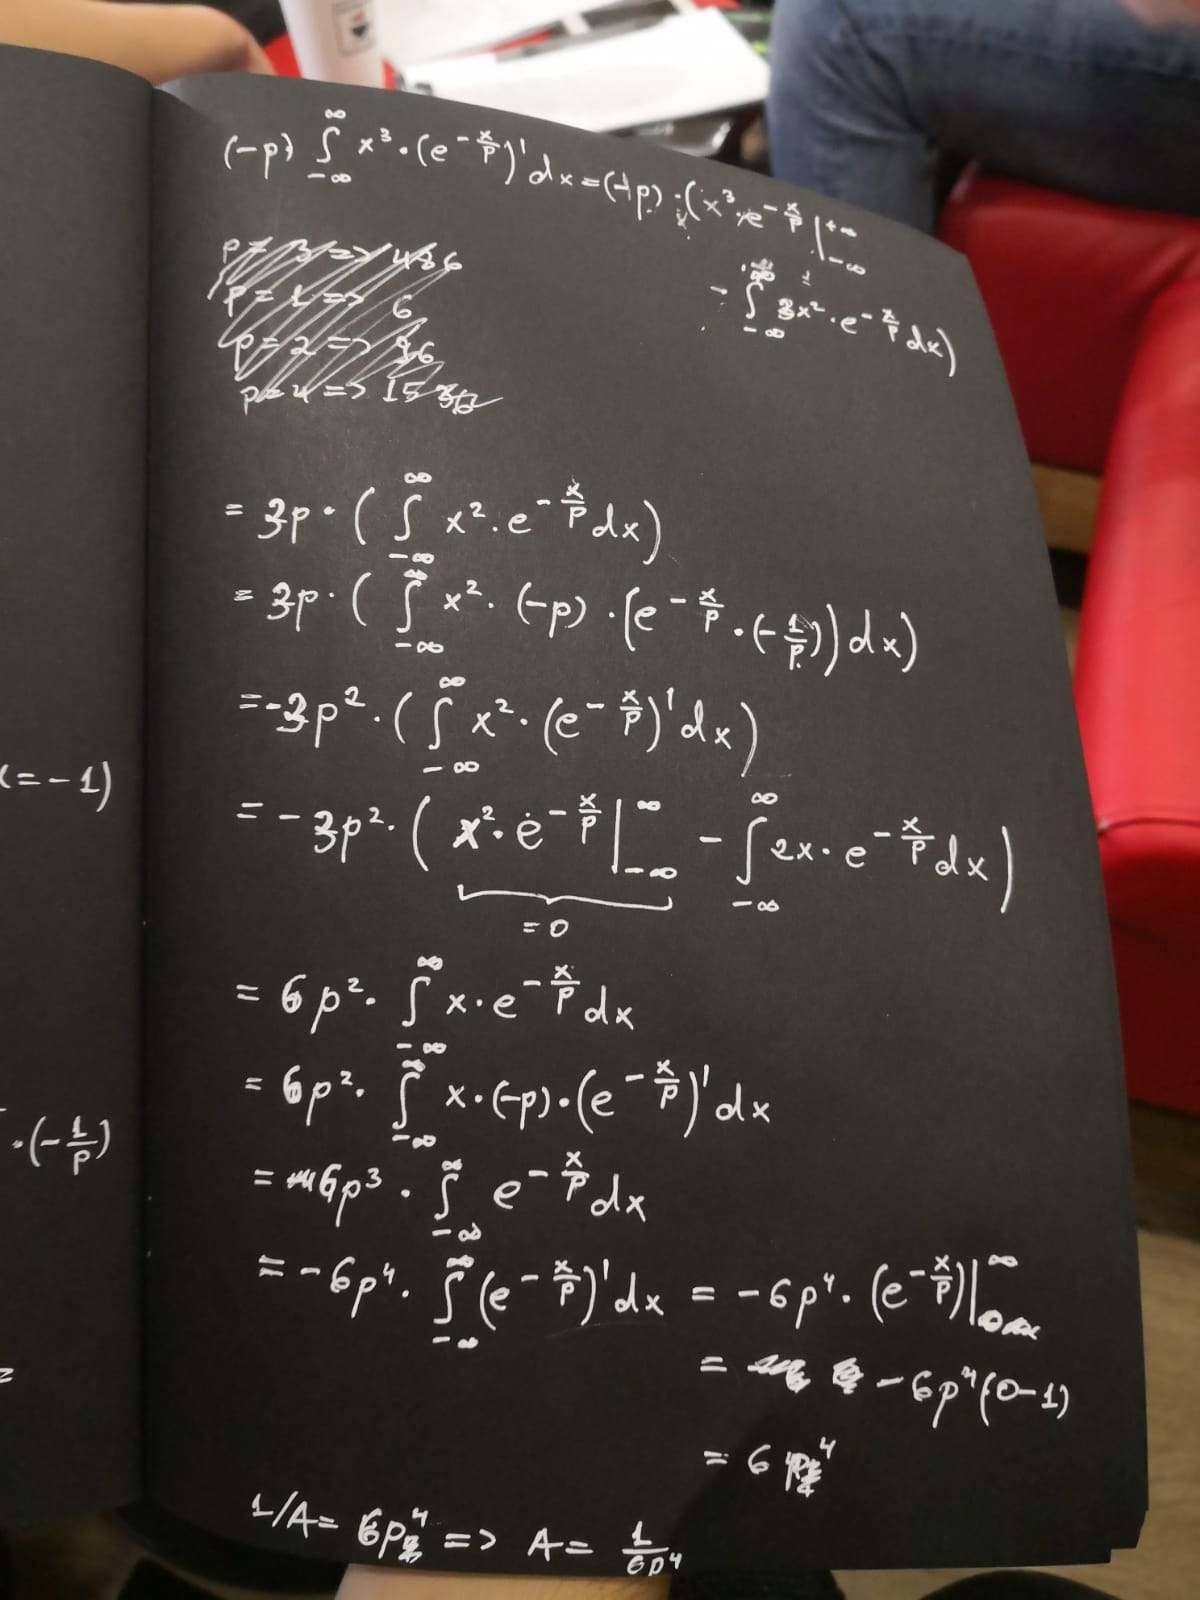 (-p) ∫_{-∞}^{∞} x³·(e^{-x/p})' dx = (-p)·(x³·e^{-x/p} |_{-∞}^{+∞}
- ∫_{-∞}^{∞} 3x²·e^{-x/p} dx)
p = 3 => 486
p = 1 => 6
p = 2 => 96
p = 4 => 1536
= 3p·( ∫_{-∞}^{∞} x²·e^{-x/p} dx)
= 3p·( ∫_{-∞}^{∞} x²·(-p)·(e^{-x/p}·(-1/p)) dx)
= -3p²·( ∫_{-∞}^{∞} x²·(e^{-x/p})' dx)
= -3p²·( x²·e^{-x/p} |_{-∞}^{∞} - ∫_{-∞}^{∞} 2x·e^{-x/p} dx)
= 0
= 6p²· ∫_{-∞}^{∞} x·e^{-x/p} dx
= 6p²· ∫_{-∞}^{∞} x·(-p)·(e^{-x/p})' dx
= 6p³· ∫_{-∞}^{∞} e^{-x/p} dx
= -6p⁴· ∫_{-∞}^{∞} (e^{-x/p})' dx = -6p⁴·(e^{-x/p})|_{0}^{∞}
= -6p⁴(0-1)
= 6p⁴
1/A = 6p⁴ => A = 1/6p⁴
(=-1)
·(-1/p)